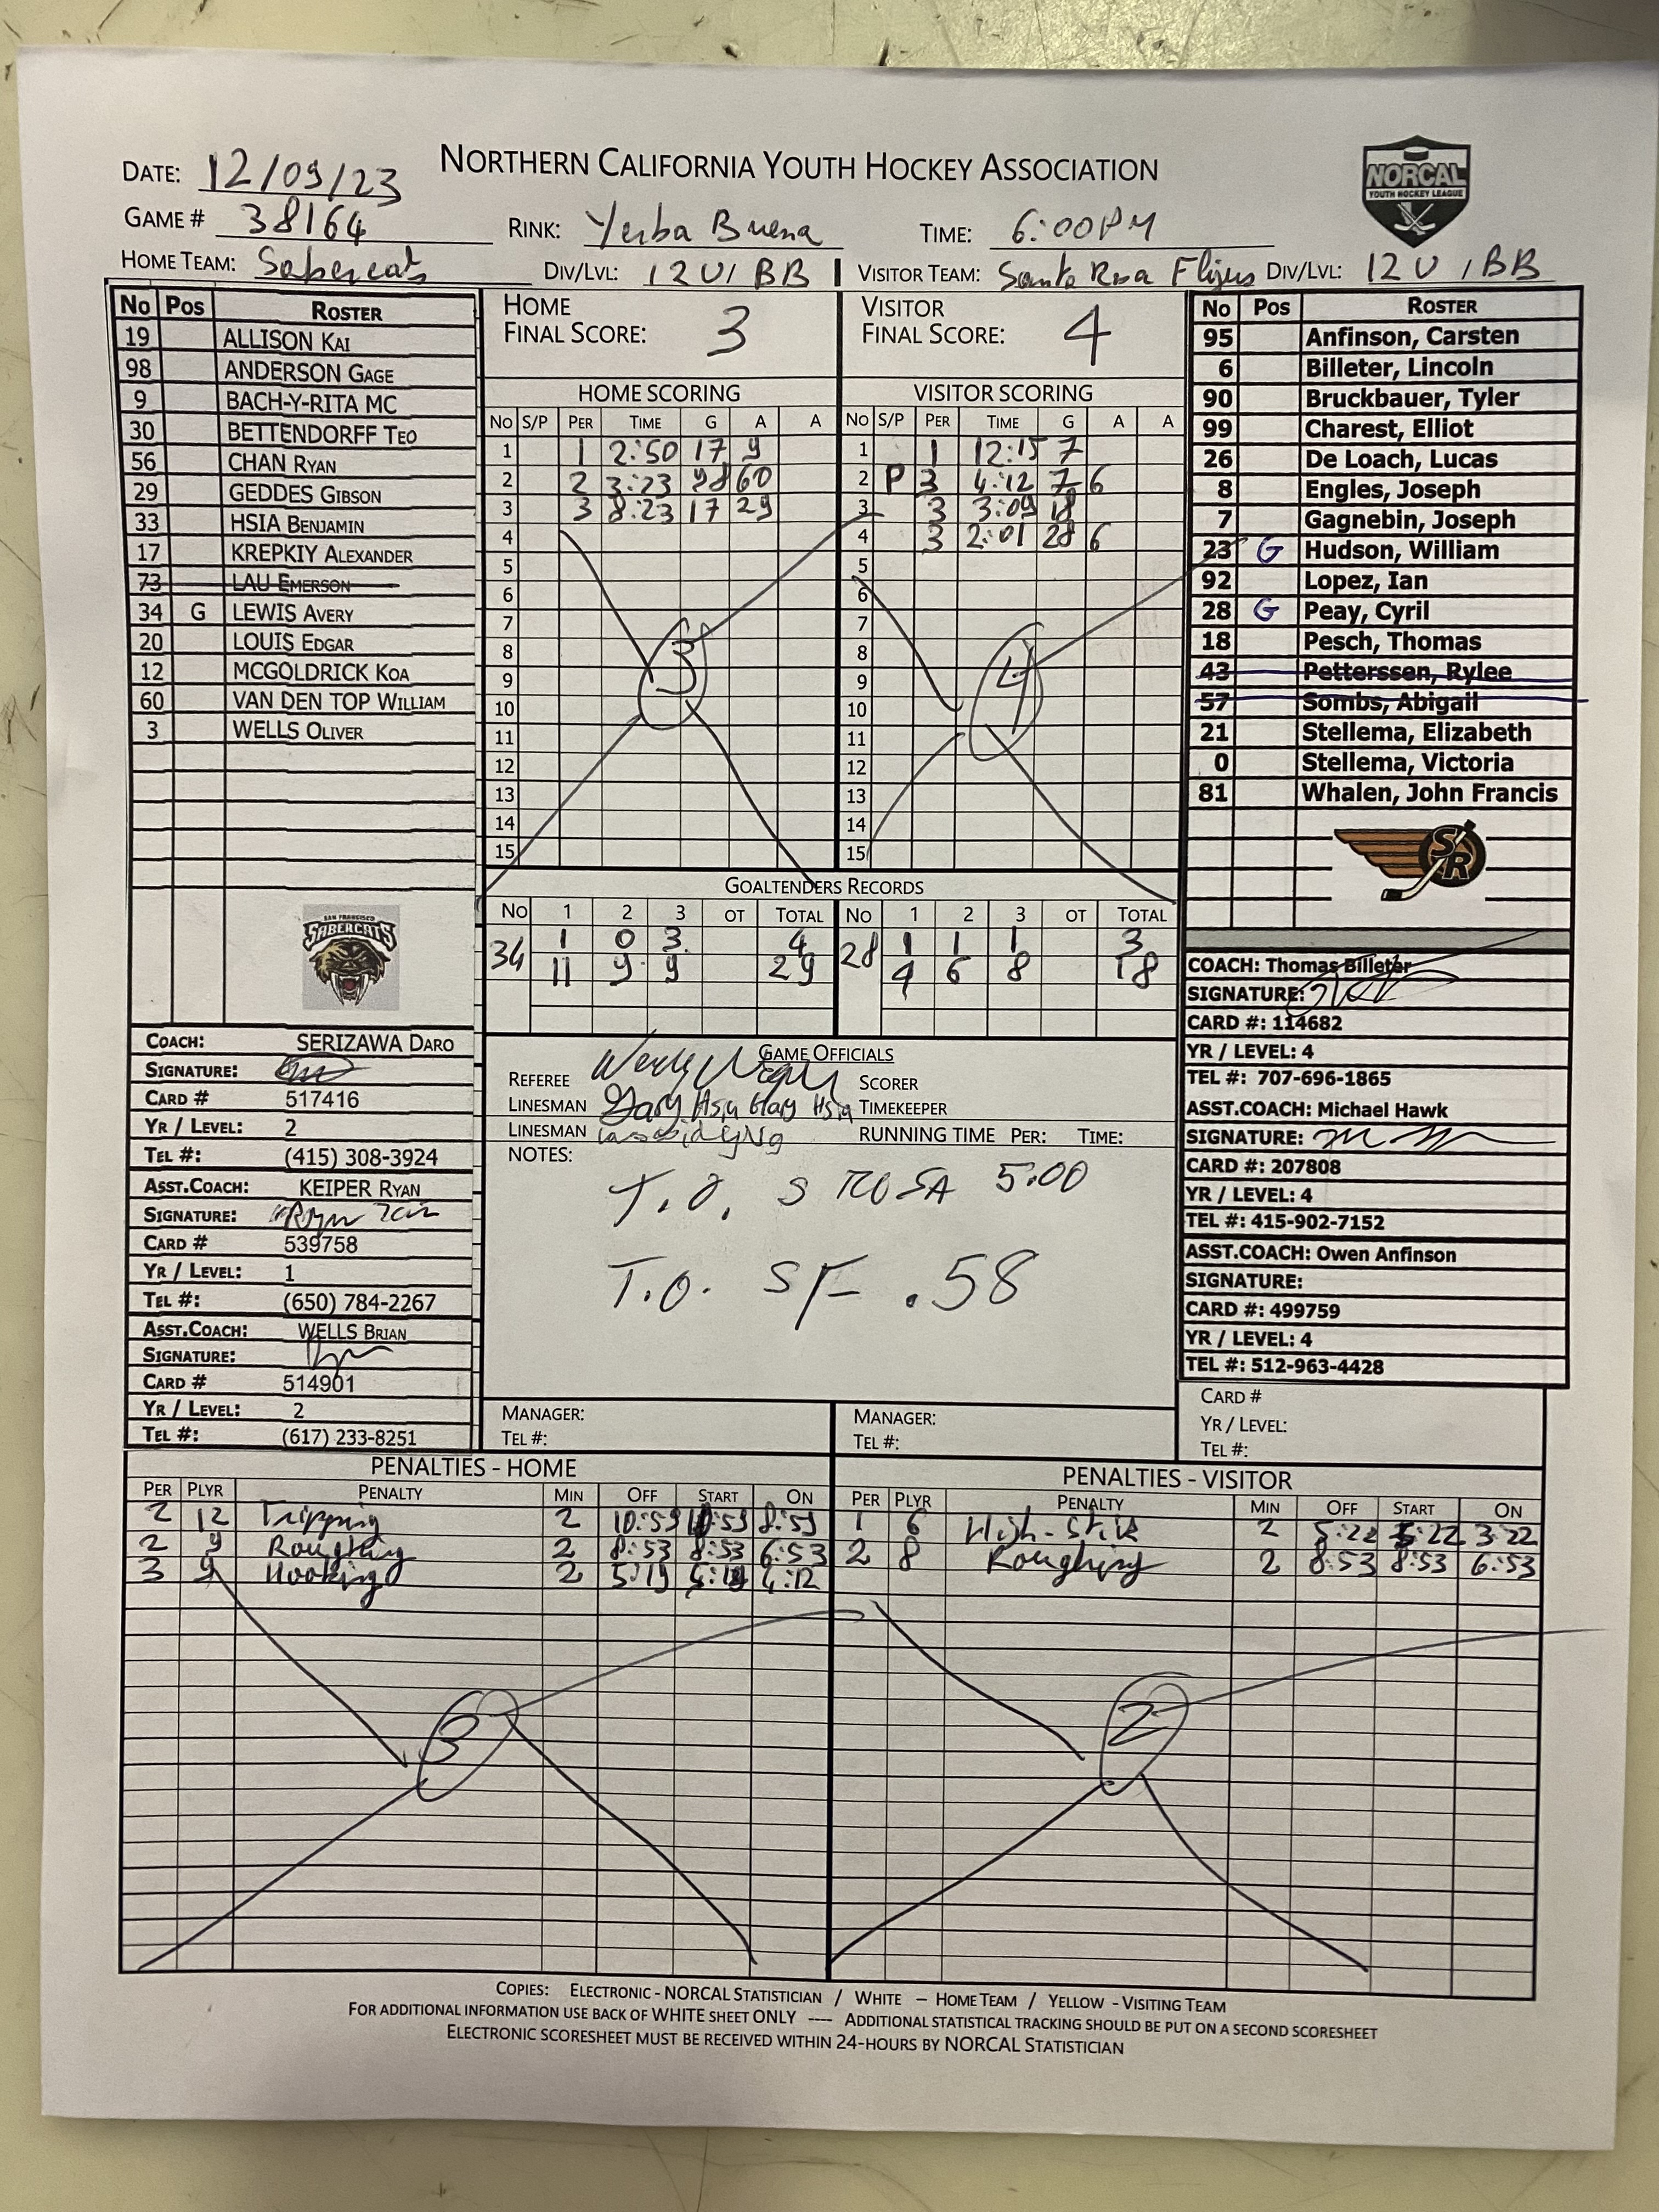 NORTHERN CALIFORNIA YOUTH HOCKEY ASSOCIATION
NORCAL
YOUTH HOCKEY LEAGUE
DATE: 12/09/23
GAME # 38164 RINK: Yerba Buena TIME: 6:00PM
HOME TEAM: Sabercats DIV/LVL: 12U/BB VISITOR TEAM: Santa Rosa Flyers DIV/LVL: 12U/BB
No Pos ROSTER
19 ALLISON KAI
98 ANDERSON GAGE
9 BACH-Y-RITA MC
30 BETTENDORFF TEO
56 CHAN RYAN
29 GEDDES GIBSON
33 HSIA BENJAMIN
17 KREPKIY ALEXANDER
73 LAU EMERSON
34 G LEWIS AVERY
20 LOUIS EDGAR
12 MCGOLDRICK KOA
60 VAN DEN TOP WILLIAM
3 WELLS OLIVER
SAN FRANCISCO
SABERCATS
COACH: SERIZAWA DARO
SIGNATURE:
CARD # 517416
YR / LEVEL: 2
TEL #: (415) 308-3924
ASST.COACH: KEIPER RYAN
SIGNATURE:
CARD # 539758
YR / LEVEL: 1
TEL #: (650) 784-2267
ASST.COACH: WELLS BRIAN
SIGNATURE:
CARD # 514901
YR / LEVEL: 2
TEL #: (617) 233-8251
HOME
FINAL SCORE: 3
HOME SCORING
No S/P PER TIME G A A
1 1 2:50 17 9
2 2 3:23 98 60
3 3 8:23 17 29
4
5
6
7
8
9
10
11
12
13
14
15
3
VISITOR
FINAL SCORE: 4
VISITOR SCORING
No S/P PER TIME G A A
1 1 12:15 7
2 P 3 4:12 7 6
3 3 3:09 18
4 3 2:01 28 6
5
6
7
8
9
10
11
12
13
14
15
4
GOALTENDERS RECORDS
No 1 2 3 OT TOTAL No 1 2 3 OT TOTAL
34 1 0 3 4 28 1 1 1 3
11 9 9 29 4 6 8 18
GAME OFFICIALS
REFEREE SCORER
LINESMAN Gary Hsia Gary Hsia TIMEKEEPER
LINESMAN RUNNING TIME PER: TIME:
NOTES:
T.O. S ROSA 5:00
T.O. SF .58
MANAGER: MANAGER:
TEL #: TEL #:
No Pos ROSTER
95 Anfinson, Carsten
6 Billeter, Lincoln
90 Bruckbauer, Tyler
99 Charest, Elliot
26 De Loach, Lucas
8 Engles, Joseph
7 Gagnebin, Joseph
23 G Hudson, William
92 Lopez, Ian
28 G Peay, Cyril
18 Pesch, Thomas
43 Petterssen, Rylee
57 Sombs, Abigail
21 Stellema, Elizabeth
0 Stellema, Victoria
81 Whalen, John Francis
SR
COACH: Thomas Billeter
SIGNATURE:
CARD #: 114682
YR / LEVEL: 4
TEL #: 707-696-1865
ASST.COACH: Michael Hawk
SIGNATURE:
CARD #: 207808
YR / LEVEL: 4
TEL #: 415-902-7152
ASST.COACH: Owen Anfinson
SIGNATURE:
CARD #: 499759
YR / LEVEL: 4
TEL #: 512-963-4428
CARD #
YR / LEVEL:
TEL #:
PENALTIES - HOME
PER PLYR PENALTY MIN OFF START ON
2 12 Tripping 2 10:59 10:59 8:59
2 9 Roughing 2 8:53 8:53 6:53
3 9 Hooking 2 5:19 5:19 4:12
3
PENALTIES - VISITOR
PER PLYR PENALTY MIN OFF START ON
1 6 High-Stick 2 5:22 5:22 3:22
2 8 Roughing 2 8:53 8:53 6:53
2
COPIES: ELECTRONIC - NORCAL STATISTICIAN / WHITE – HOME TEAM / YELLOW - VISITING TEAM
FOR ADDITIONAL INFORMATION USE BACK OF WHITE SHEET ONLY ---- ADDITIONAL STATISTICAL TRACKING SHOULD BE PUT ON A SECOND SCORESHEET
ELECTRONIC SCORESHEET MUST BE RECEIVED WITHIN 24-HOURS BY NORCAL STATISTICIAN